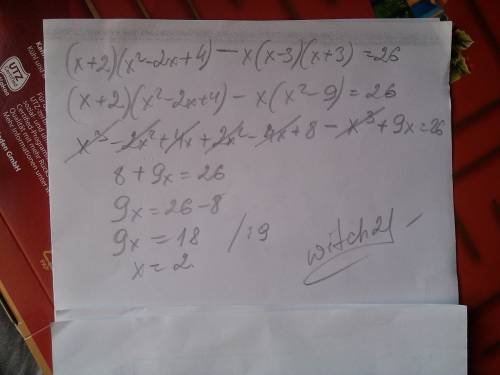 (x+2)(x²-2x+4) - x(x-3)(x+3) = 26
(x+2)(x²-2x+4) - x(x²-9) = 26
x³ - 2x² + 4x + 2x² - 4x + 8 - x³ + 9x = 26
8 + 9x = 26
9x = 26 - 8
9x = 18 /:9
x = 2
witch21
UTZ